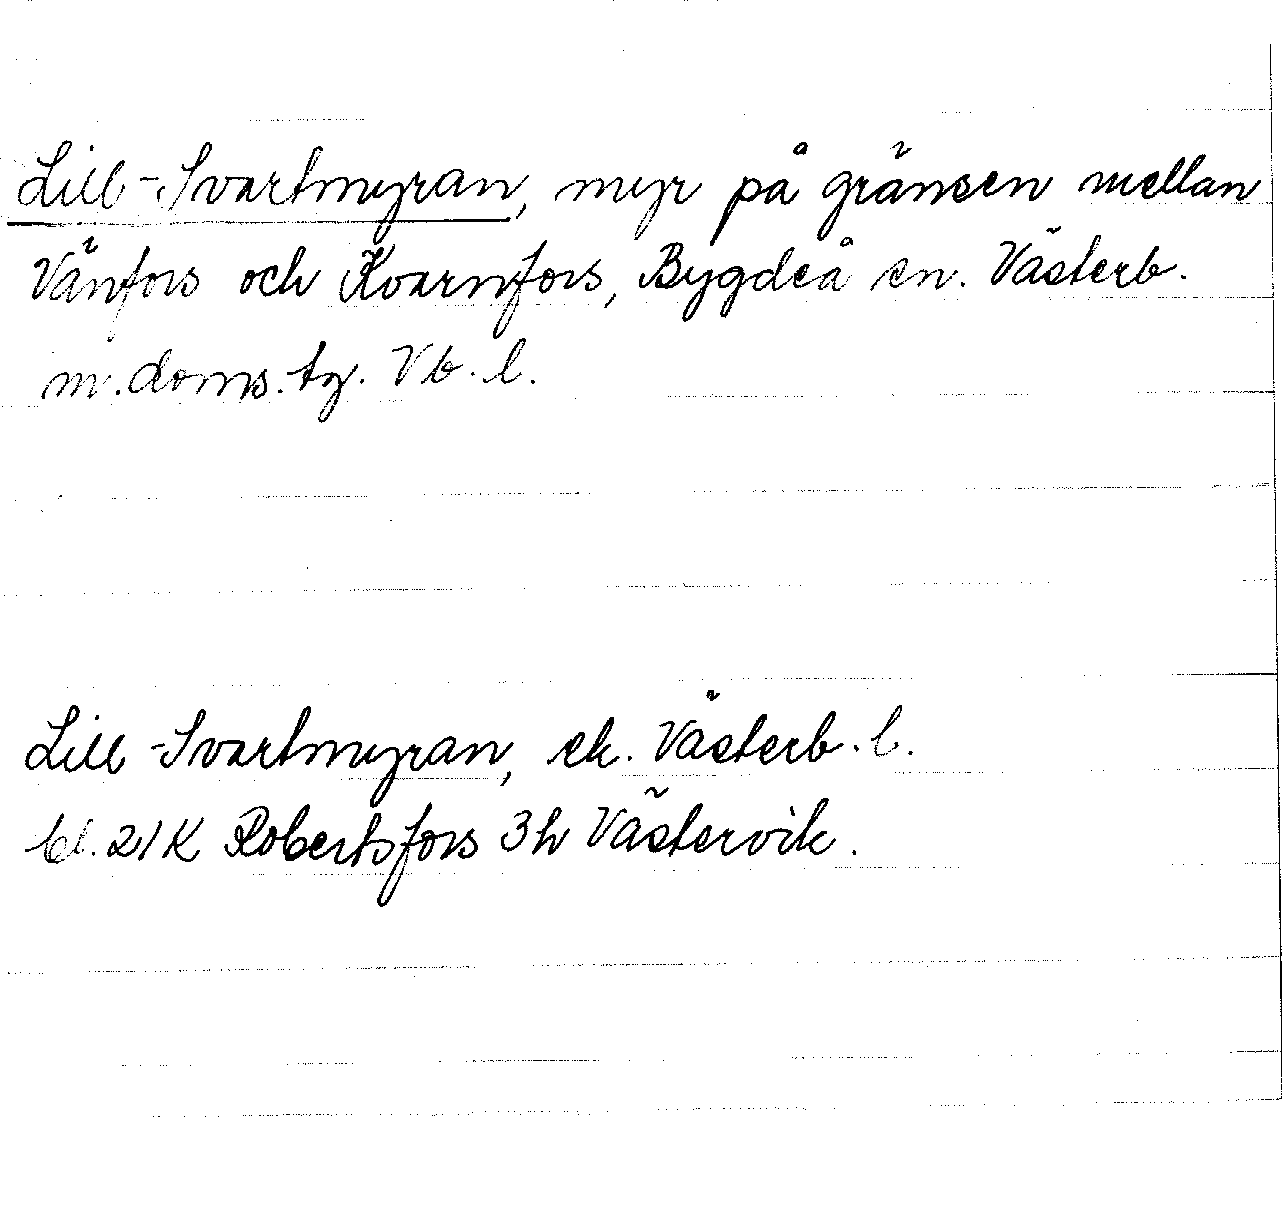 Lill-Svartmyran, myr på gränsen mellan
Vänfors och Kvarnfors, Bygdeå sn. Västerb.
m. doms. tg. Vb. l.
Lill-Svartmyran, ek. Västerb. l.
bl. 21K Robertsfors 3h Västervik.